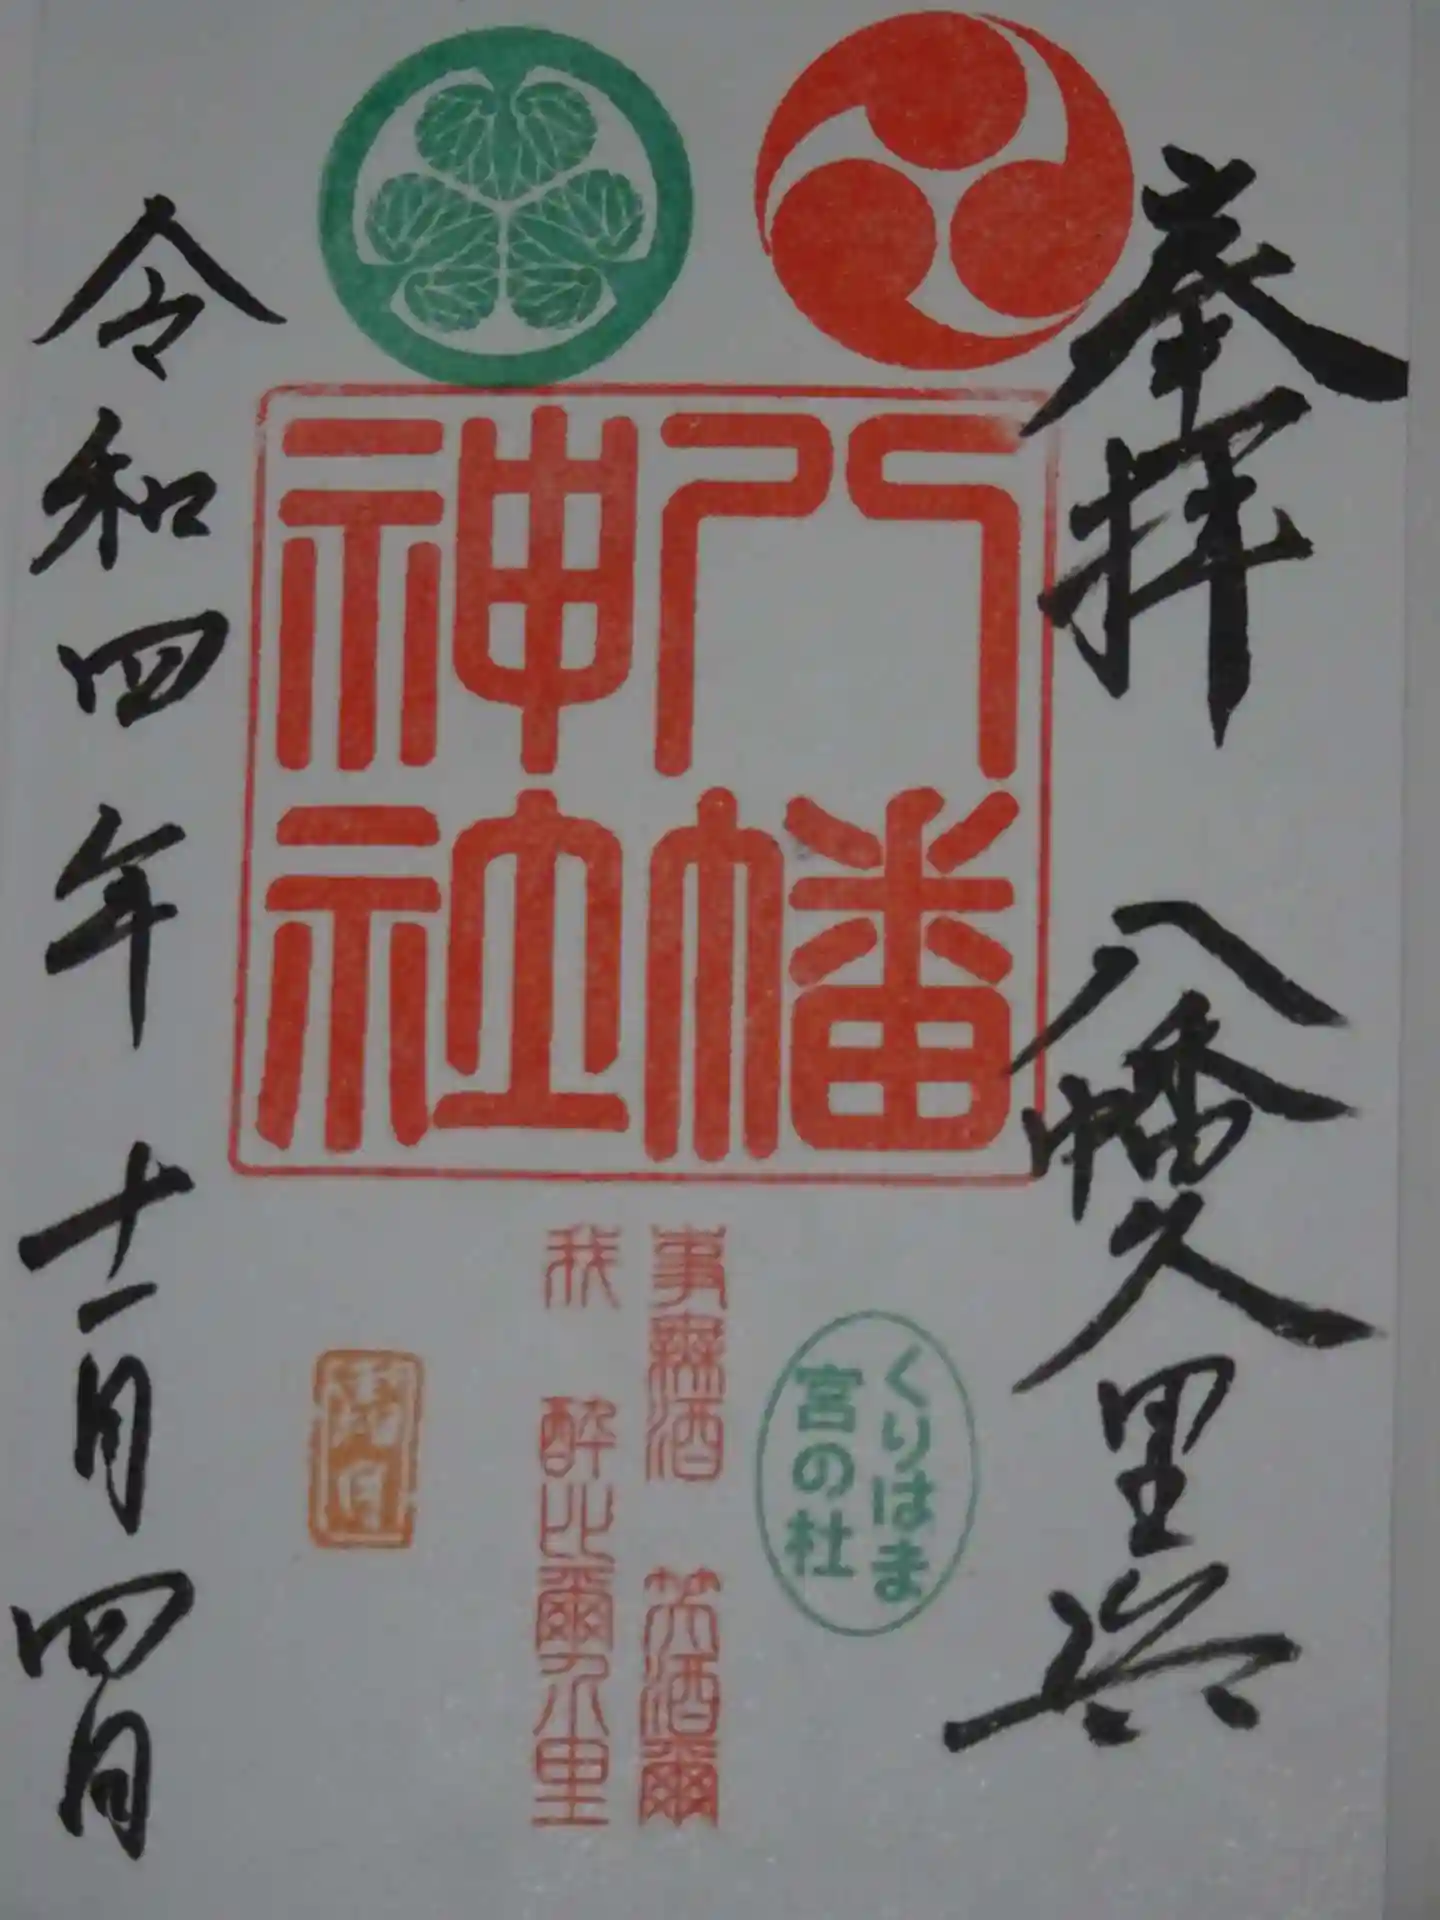 奉拝
八幡久里浜
八幡
神社
くりはま
宮の杜
事無酒 笑酒爾
我 酔比爾介里
令和四年十一月四日